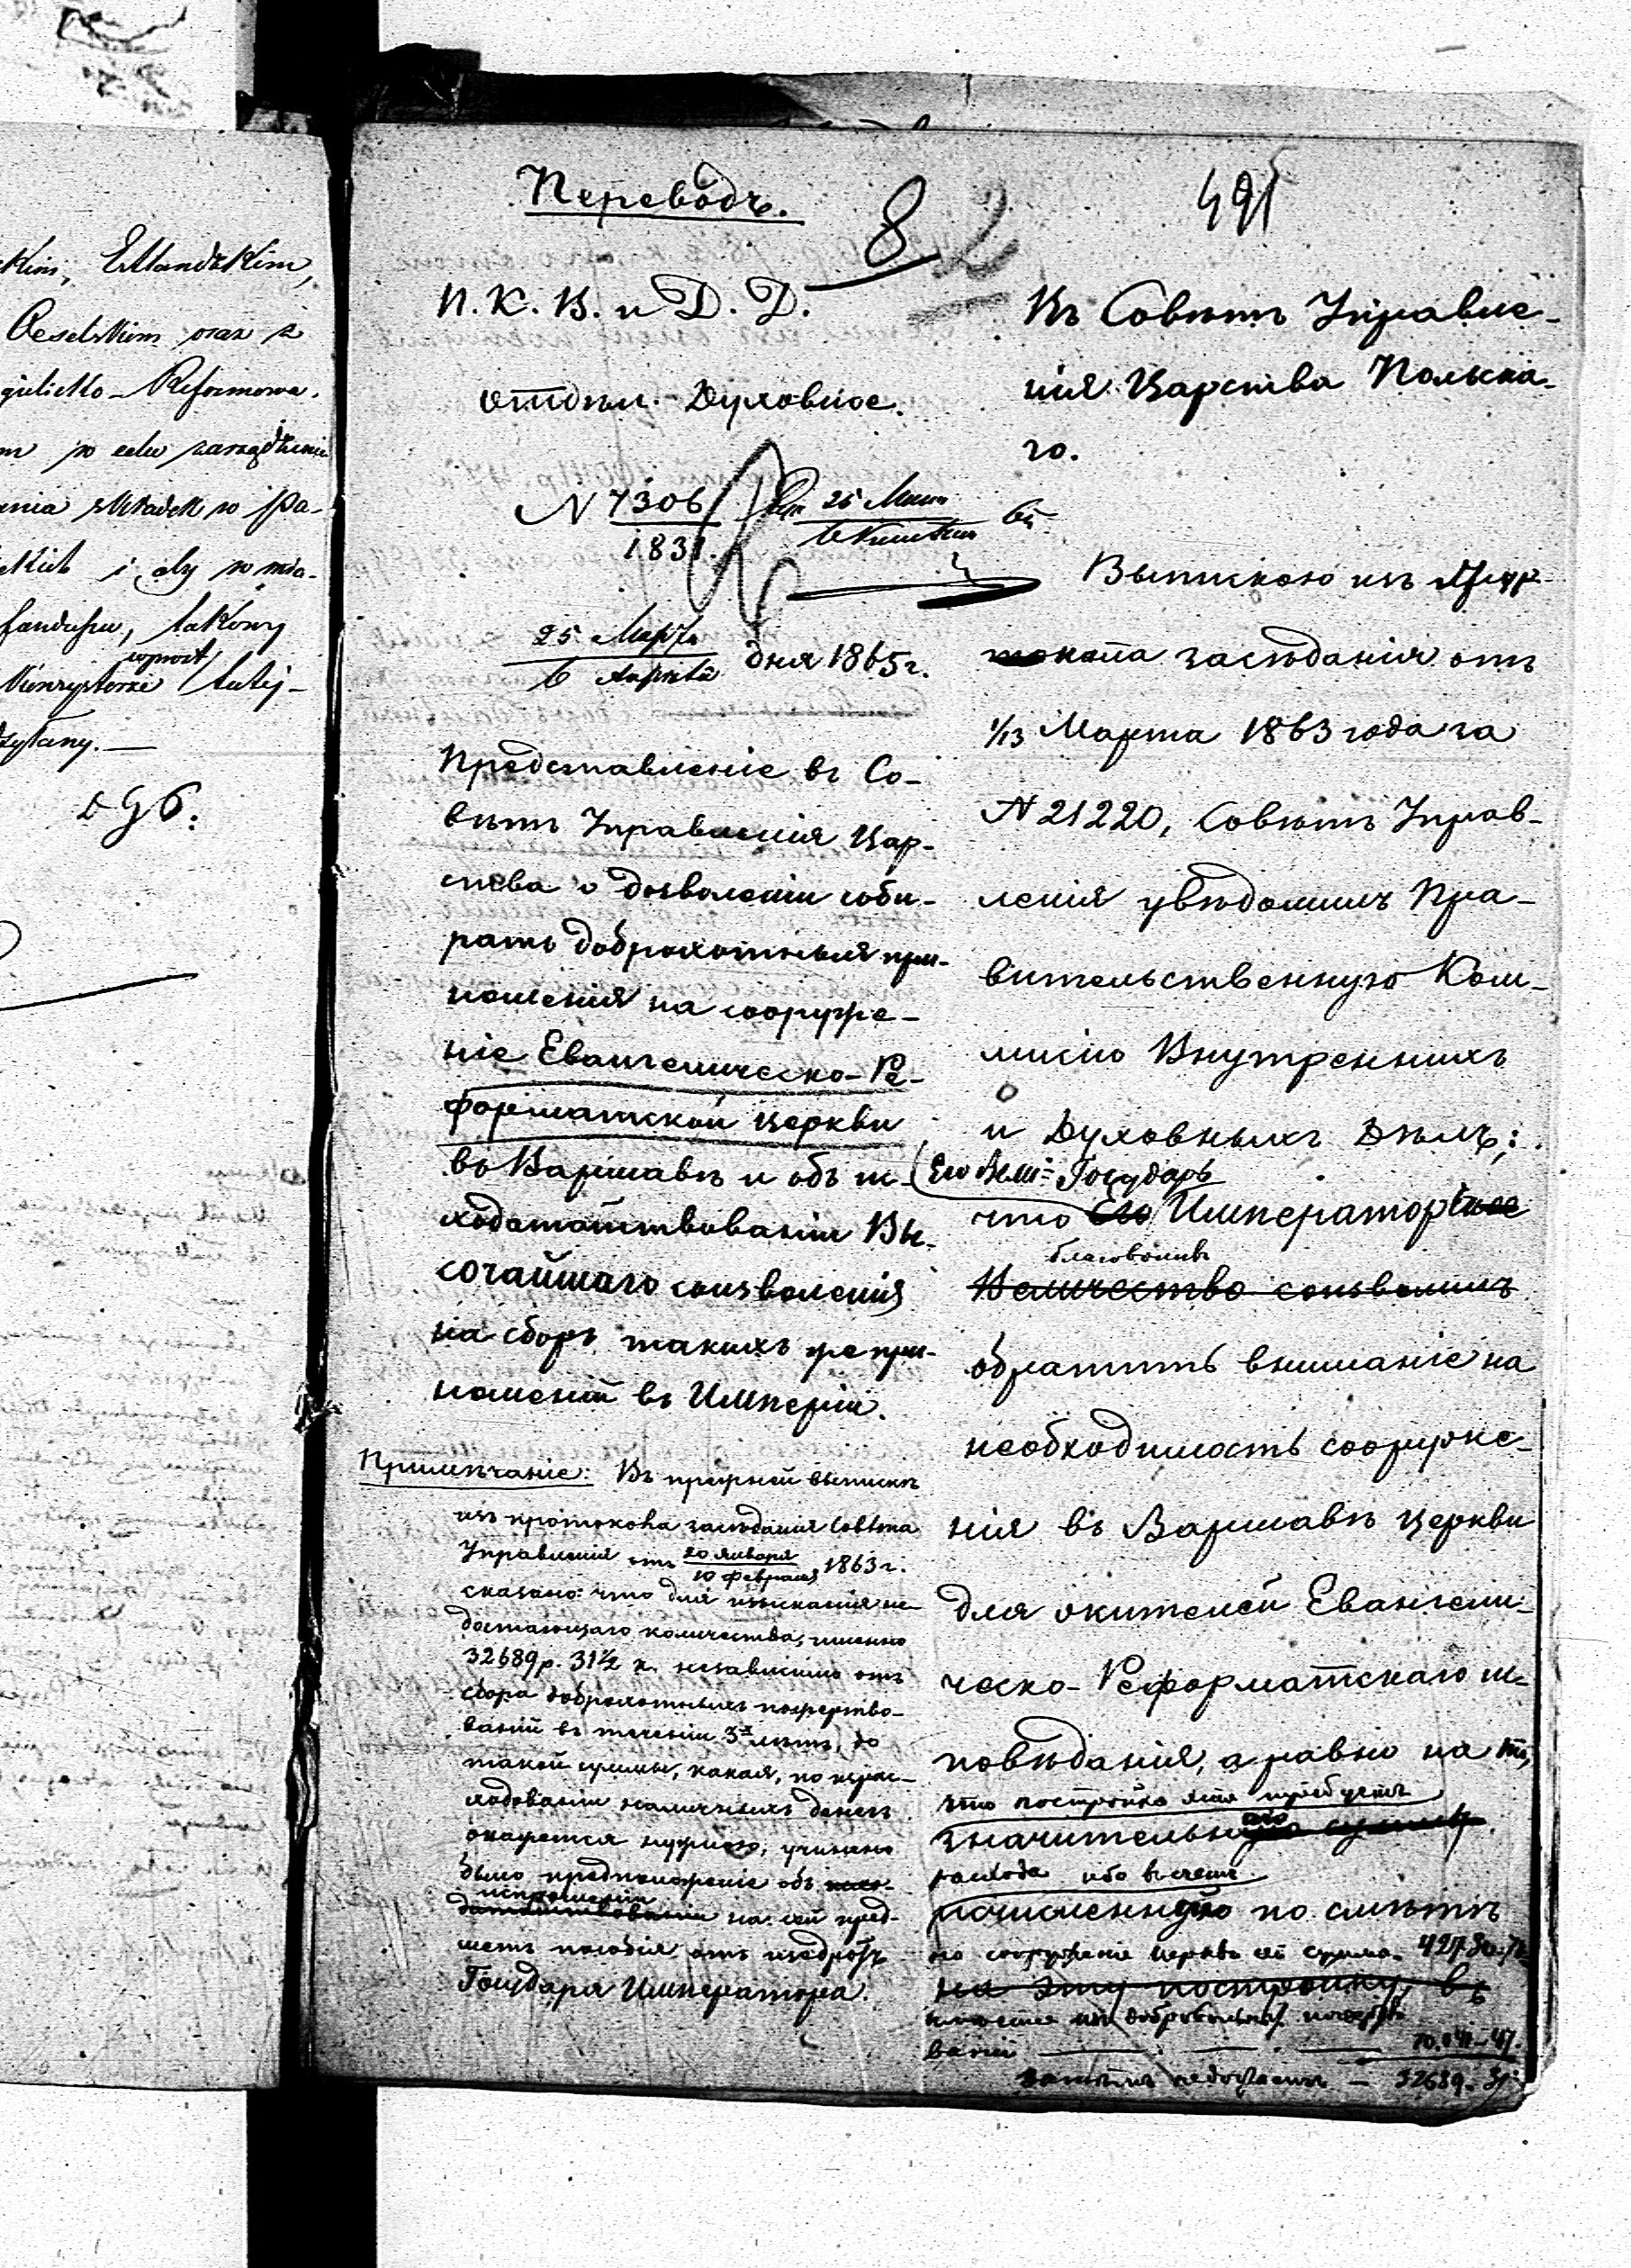 Kim, Estlandzkim,
Oeselskim oraz z
gielicko-Reformowa.
m w celu zarządzenia
ania składek w Pa-
ckich i aby w mia-
funduszu, takowy
wprost
Konsystorze tutej-
syłany. —
Переводъ.
8
2
491
П. К. В. и Д. Д.
Отдѣл. Духовное.
N 7306
1831.
25 Марта
6 Апрѣля дня 1865 г.
Представленіе въ Со-
вѣтъ Управленія Цар-
ства о дозволеніи соби-
рать доброхотныя при-
ношенія на сооруже-
ніе Евангелическо-Ре-
форматской церкви
въ Варшавѣ и объ ис-
ходатайствованіи Вы-
сочайшаго соизволенія
на сборъ такихъ же при-
ношеній въ Имперіи.
Примѣчаніе: Въ прежней выпискѣ
изъ протокола засѣданія Совѣта
Управленія отъ 20 Января
10 Февраля 1863 г.
сказано: что для изысканія не-
достающаго количества, именно
32689 р. 31½ к. независимо отъ
сбора доброхотныхъ пожертво-
ваній въ теченіи 3х лѣтъ, до
такой суммы, какая, по израс-
ходованіи наличныхъ денегъ
окажется нужною, учинено
было предположеніе объ исхо-
испрошеніи
датайствованіи на сей пред-
метъ пособія отъ щедротъ
Государя Императора.
Въ Совѣтъ Управле-
нія Царства Польска-
го.
Выпискою изъ
токола засѣданія отъ
1/13 Марта 1863 года за
N 21220, Совѣтъ Управ-
ленія увѣдомилъ Пра-
вительственную Ком-
мисію Внутреннихъ
и Духовныхъ Дѣлъ;
Государь
что Его Императорское
благоволивъ
Величество соизволилъ
обратить вниманіе на
необходимость сооруже-
нія въ Варшавѣ церкви
для жителей Евангели-
ческо-Реформатскаго ис-
повѣданія, а равно на то,
что постройка эта требуетъ
значительную сумму
расхода ибо
исчисленную по смѣтѣ
на сооруженіе церкви сей сумма
на эту постройку, въ
добровольныхъ пожертво
ваній
затѣмъ недостаетъ — 32689. 31